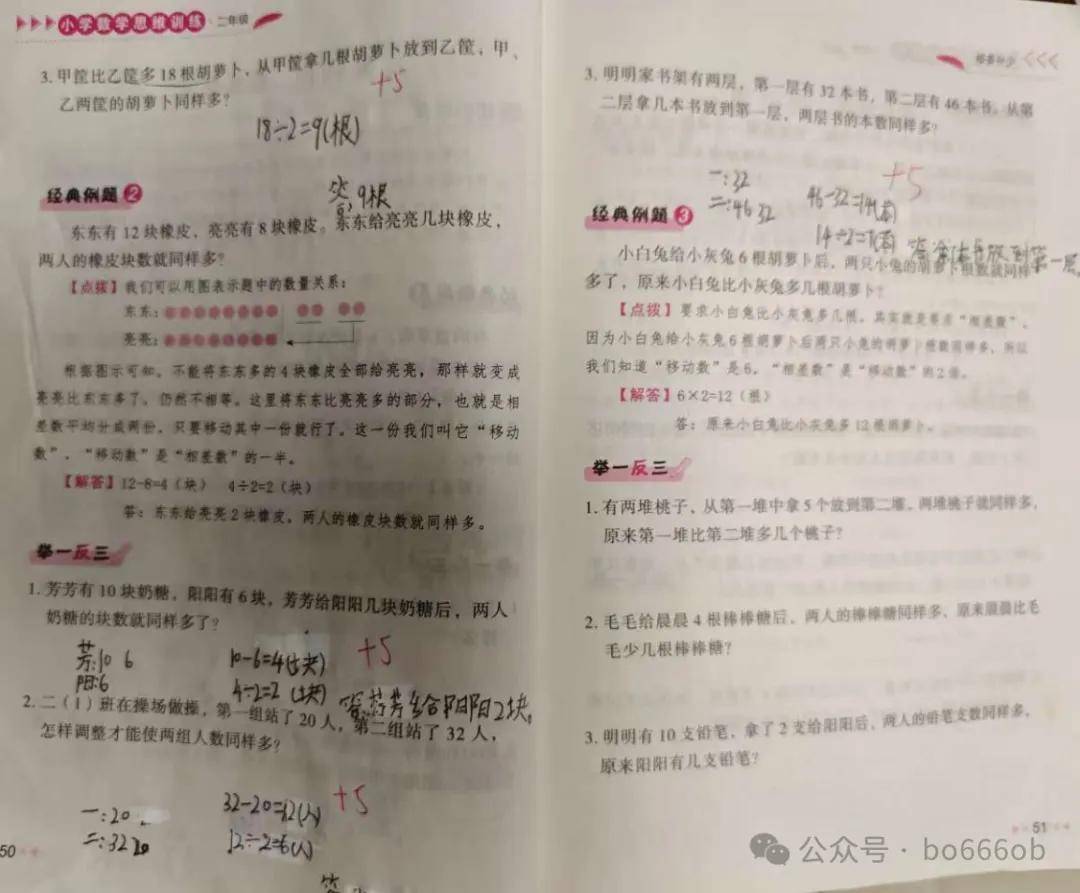 小学数学思维训练 · 二年级
3. 甲筐比乙筐多18根胡萝卜，从甲筐拿几根胡萝卜放到乙筐，甲、
乙两筐的胡萝卜同样多？
+5
18÷2=9(根)
答:9根
经典例题2
东东有12块橡皮，亮亮有8块橡皮。东东给亮亮几块橡皮，
两人的橡皮块数就同样多？
【点拨】我们可以用图表示题中的数量关系：
东东：
亮亮：
根据图示可知，不能将东东多的4块橡皮全部给亮亮，那样就变成
亮亮比东东多了，仍然不相等。这里将东东比亮亮多的部分，也就是相
差数平均分成两份，只要移动其中一份就行了。这一份我们叫它“移动
数”，“移动数”是“相差数”的一半。
【解答】12-8=4（块） 4÷2=2（块）
答：东东给亮亮2块橡皮，两人的橡皮块数就同样多。
举一反三
1. 芳芳有10块奶糖，阳阳有6块，芳芳给阳阳几块奶糖后，两人
奶糖的块数就同样多了？
芳:10 6
阳:6
10-6=4(块)
4÷2=2(块)
+5
答:芳芳给阳阳2块。
2. 二（1）班在操场做操，第一组站了20人，第二组站了32人，
怎样调整才能使两组人数同样多？
一:20
二:32 20
32-20=12(人)
12÷2=6(人)
+5
答
50
3. 明明家书架有两层，第一层有32本书，第二层有46本书。从第
二层拿几本书放到第一层，两层书的本数同样多？
一:32
二:46 32
46-32=14
14÷2=7
+5
放到第一层
经典例题3
小白兔给小灰兔6根胡萝卜后，两只小兔的胡萝卜根数就同样
多了，原来小白兔比小灰兔多几根胡萝卜？
【点拨】要求小白兔比小灰兔多几根，其实就是要求“相差数”。
因为小白兔给小灰兔6根胡萝卜后两只小兔的胡萝卜根数同样多，所以
我们知道“移动数”是6，“相差数”是“移动数”的2倍。
【解答】6×2=12（根）
答：原来小白兔比小灰兔多12根胡萝卜。
举一反三
1. 有两堆桃子，从第一堆中拿5个放到第二堆，两堆桃子就同样多，
原来第一堆比第二堆多几个桃子？
2. 毛毛给晨晨4根棒棒糖后，两人的棒棒糖同样多，原来晨晨比毛
毛少几根棒棒糖？
3. 明明有10支铅笔，拿了2支给阳阳后，两人的铅笔支数同样多，
原来阳阳有几支铅笔？
51
公众号 · bo666ob